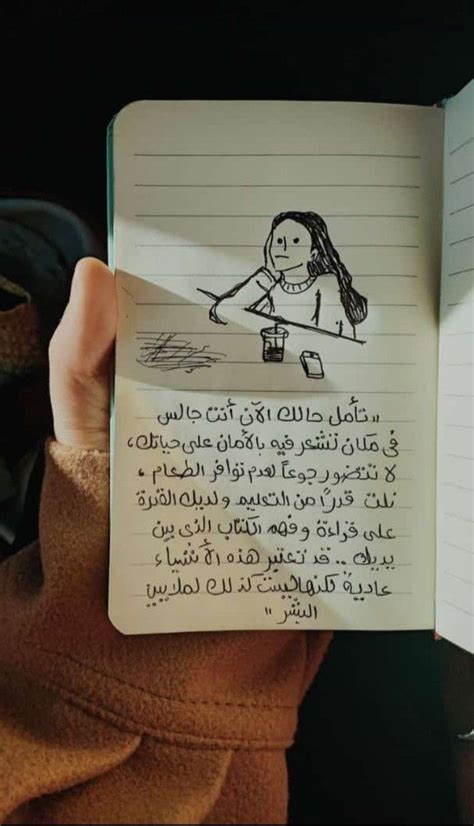 "تأمل حالك الآن أنت جالس
في مكان تشعر فيه بالأمان على حياتك،
لا تتضور جوعاً لعدم توافر الطعام،
نلت قدرًا من التعليم ولديك القدرة
على قراءة وفهم الكتاب الذي بين
يديك .. قد تعتبر هذه الأشياء
عادية لكنها ليست كذلك لملايين
البشر"